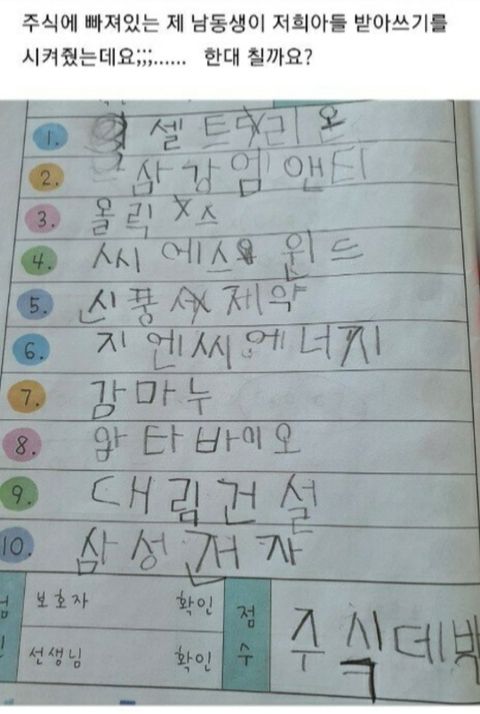 주식에 빠져있는 제 남동생이 저희아들 받아쓰기를
시켜줬는데요;;;...... 한대 칠까요?
1. 셀트리온
2. 삼강엠앤티
3. 올릭스
4. 씨에스윈드
5. 신풍제약
6. 지엔씨에너지
7. 감마누
8. 압타바이오
9. 대림건설
10. 삼성전자
보호자 확인
선생님 확인
점수
주식데박